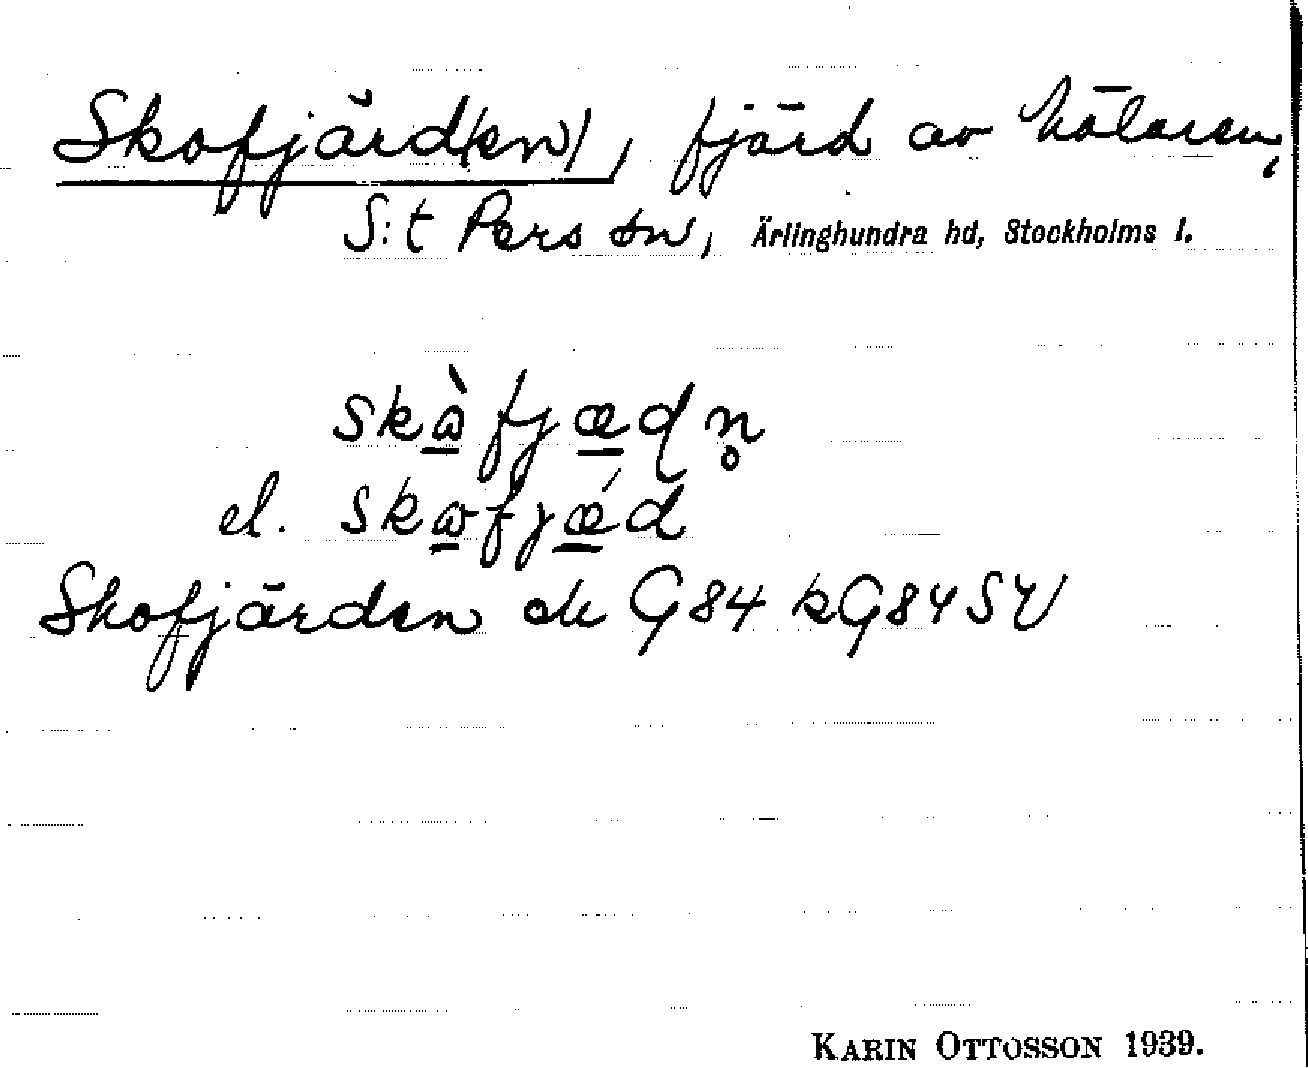 Skofjärd(en), fjärd av Mälaren,
S:t Pers sn, Ärlinghundra hd, Stockholms l.
skàfjædn̥
el. skofjǽd
Skofjärden ek G84 kG84SV
KARIN OTTOSSON 1939.